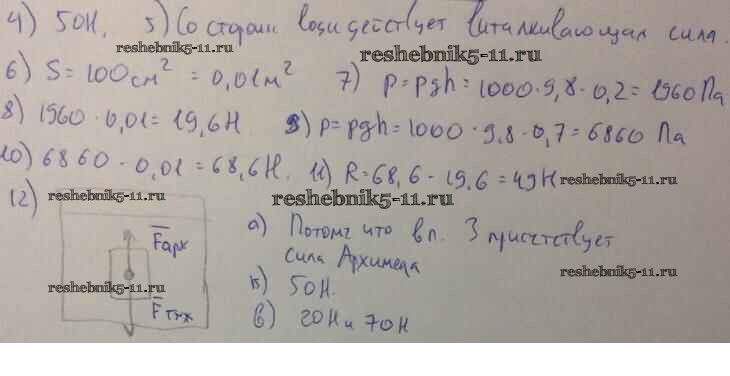 4) 50Н. 5) Со стороны воды действует выталкивающая сила.
reshebnik5-11.ru reshebnik5-11.ru
6) S = 100 см² = 0,01 м² 7) p = ρgh = 1000 · 9,8 · 0,2 = 1960 Па
8) 1960 · 0,01 = 19,6 Н 9) p = ρgh = 1000 · 9,8 · 0,7 = 6860 Па
10) 6860 · 0,01 = 68,6 Н. 11) R = 68,6 - 19,6 = 49 Н reshebnik5-11.ru
12) reshebnik5-11.ru reshebnik5-11.ru
Fарх
а) Потому что в п. 3 присутствует
сила Архимеда
reshebnik5-11.ru
reshebnik5-11.ru
б) 50Н.
Fтяж
в) 20Н и 70Н